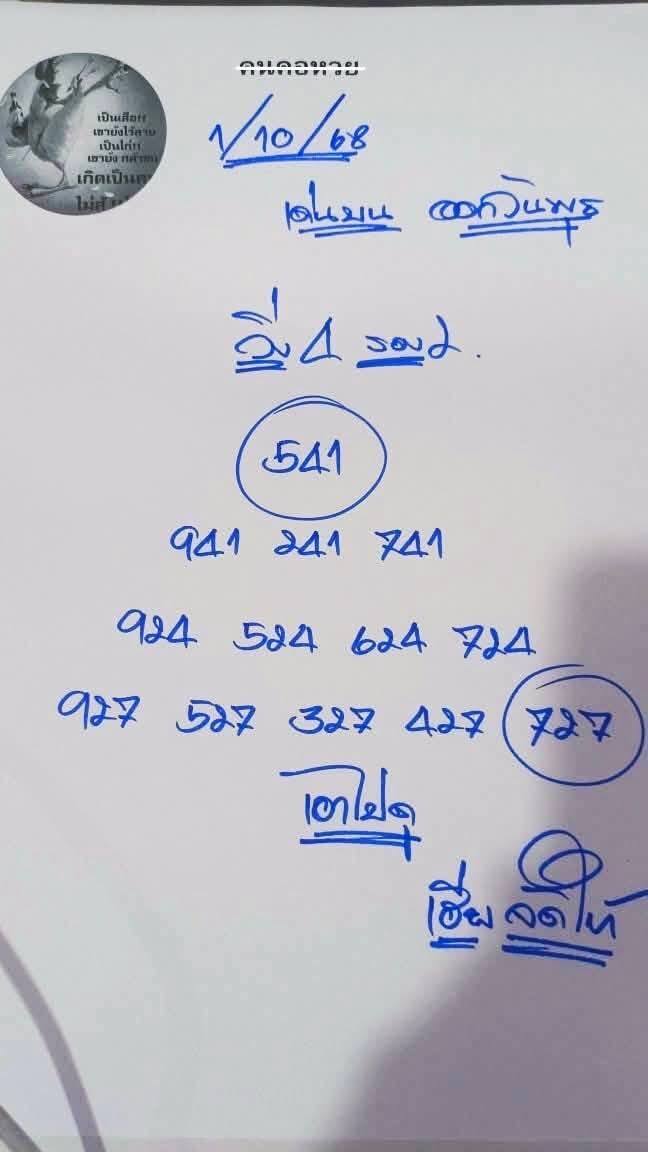 คนคอหวย
เป็นเสือ!!
เขายังไว้ลาย
เป็นไก่!!
เขายัง
เกิดเป็นค
1/10/68
เด่นบน ออกวันพุธ
วิ่ง 4 รอง 2.
541
941 241 741
924 524 624 724
927 527 327 427 727
เอาไปดู
เฮีย จัดให้